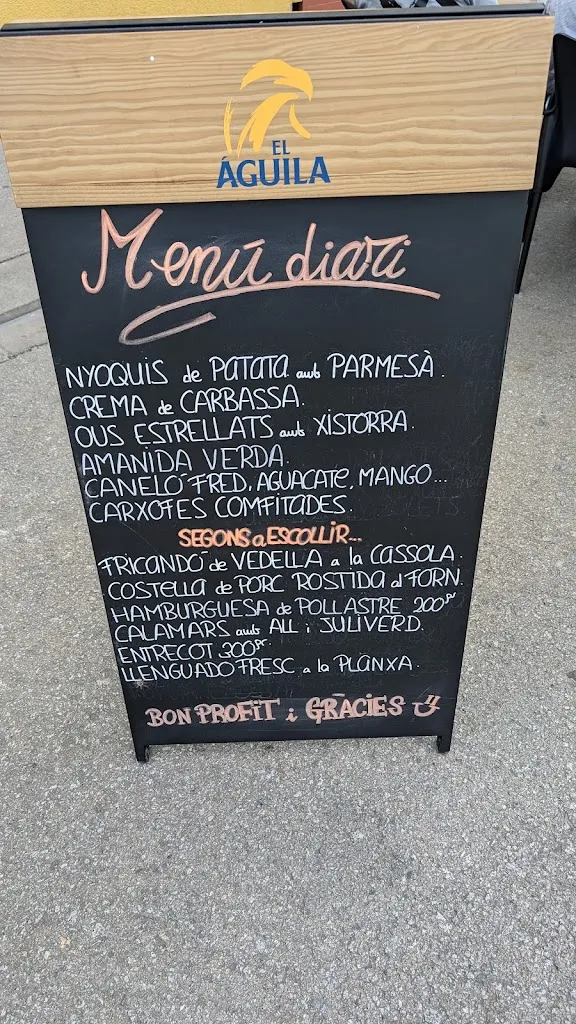 EL
ÁGUILA
Menú diari
NYOQUIS de PATATA amb PARMESÀ.
CREMA de CARBASSA.
OUS ESTRELLATS amb XISTORRA.
AMANIDA VERDA.
CANELÓ FRED, AGUACATE, MANGO...
CARXOFES COMFITADES.
SEGONS a ESCOLLIR...
FRICANDÓ de VEDELLA a la CASSOLA.
COSTELLA de PORC ROSTIDA al FORN.
HAMBURGUESA de POLLASTRE 200gr
CALAMARS amb ALL i JULIVERD.
ENTRECOT 300gr.
LLENGUADO FRESC a la PLANXA.
BON PROFIT i GRÀCIES